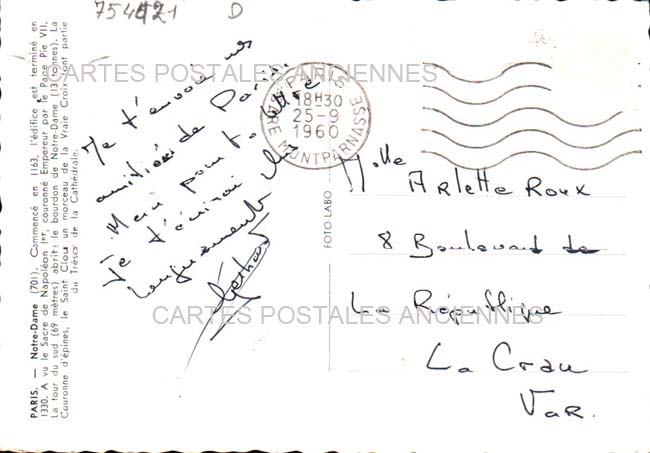 754421 D
PARIS. — Notre-Dame (701). Commencé en 1163, l'édifice est terminé en
1330. A vu le Sacre de Napoléon 1er, couronné Empereur par le Pape Pie VII.
La tour du sud (69 mètres) abrite le bourdon de Notre-Dame (13 tonnes). La
Couronne d'épines, le Saint Clou un morceau de la Vraie Croix font partie
du Trésor de la Cathédrale.
Je t'envoie mes
amitiés de Paris.
Merci pour ta lettre
Je t'écrirai plus
longuement
PARIS 15
18H30
25-9
1960
GARE MONTPARNASSE
FOTO-LABO
Mlle
Arlette Roux
8 Boulevard de
La République
La Crau
Var.
CARTES POSTALES ANCIENNES
CARTES POSTALES ANCIENNES